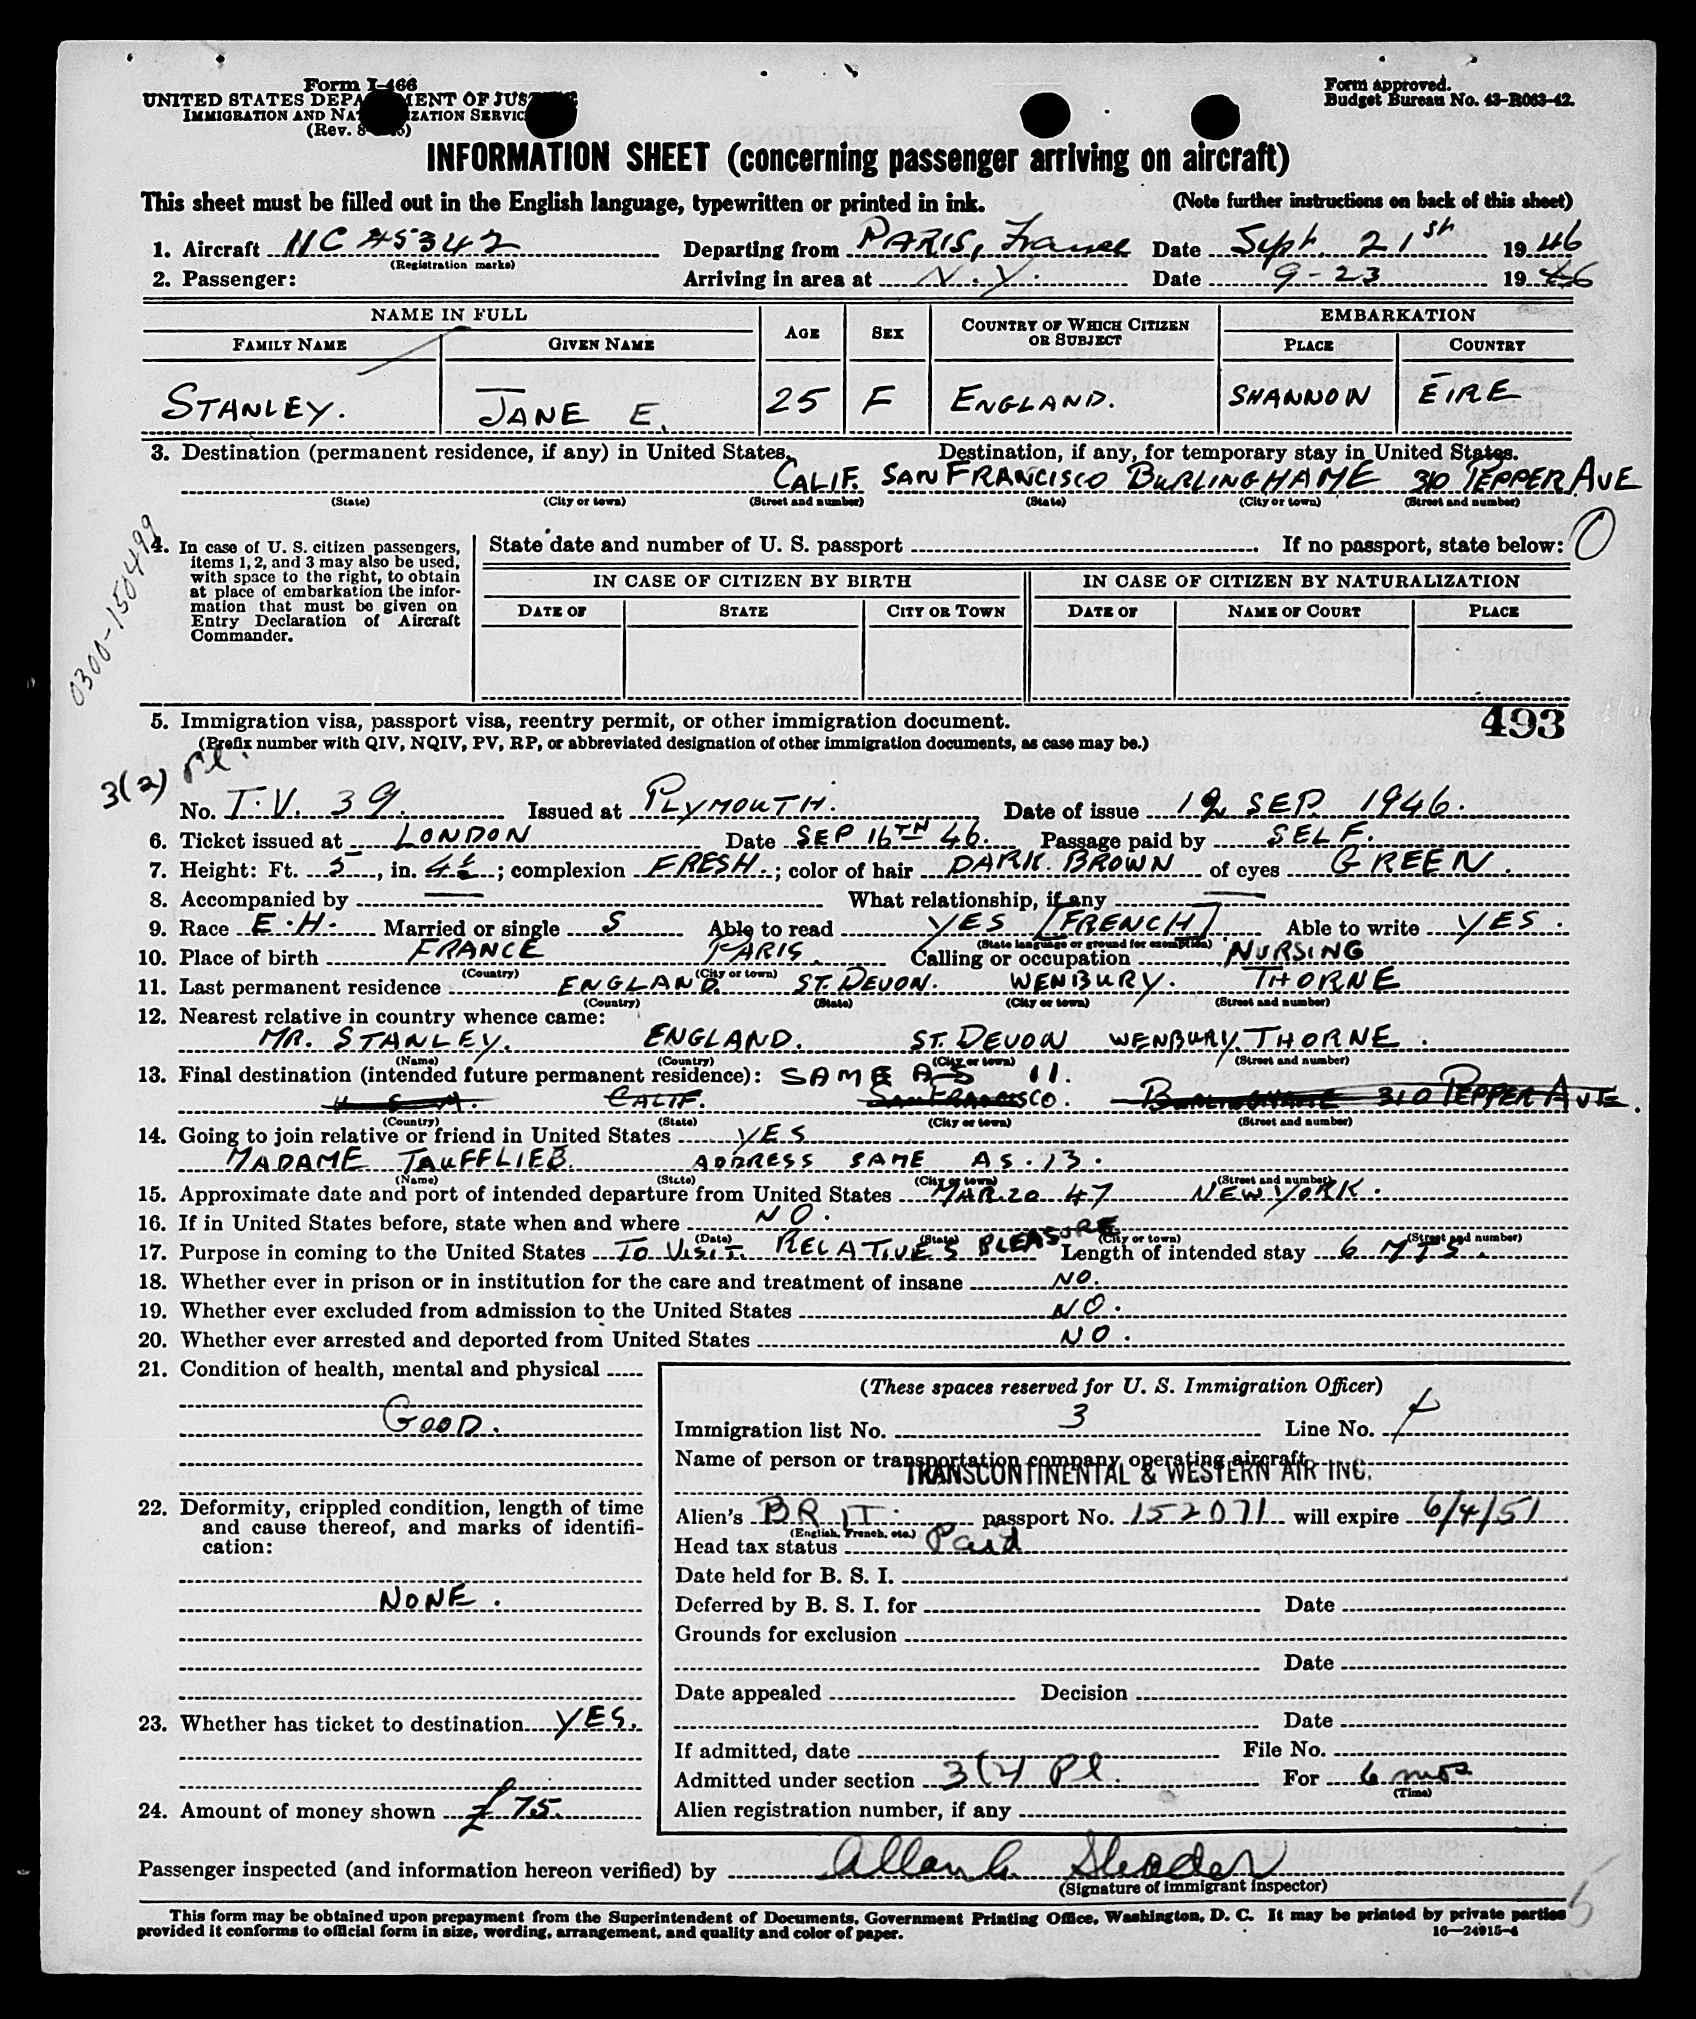 Form I-466
UNITED STATES DEPA MENT OF JUS
IMMIGRATION AND NA IZATION SERVIC
(Rev. 8
Form approved.
Budget Bureau No. 43-R063-42.
INFORMATION SHEET (concerning passenger arriving on aircraft)
This sheet must be filled out in the English language, typewritten or printed in ink. (Note further instructions on back of this sheet)
1. Aircraft NC 45342 Departing from PARIS, France Date Sept. 21st 1946
(Registration marks)
2. Passenger: Arriving in area at N.Y. Date 9-23 1946
NAME IN FULL AGE SEX COUNTRY OF WHICH CITIZEN OR SUBJECT EMBARKATION
FAMILY NAME GIVEN NAME PLACE COUNTRY
STANLEY. JANE E. 25 F ENGLAND. SHANNON EIRE
3. Destination (permanent residence, if any) in United States. Destination, if any, for temporary stay in United States.
CALIF. SAN FRANCISCO BURLINGHAME 310 PEPPER AVE
(State) (City or town) (Street and number) (State) (City or town) (Street and number)
0300-150499
4. In case of U. S. citizen passengers,
items 1, 2, and 3 may also be used,
with space to the right, to obtain
at place of embarkation the infor-
mation that must be given on
Entry Declaration of Aircraft
Commander.
State date and number of U. S. passport If no passport, state below: O
IN CASE OF CITIZEN BY BIRTH IN CASE OF CITIZEN BY NATURALIZATION
DATE OF STATE CITY OR TOWN DATE OF NAME OF COURT PLACE
5. Immigration visa, passport visa, reentry permit, or other immigration document. 493
(Prefix number with QIV, NQIV, PV, RP, or abbreviated designation of other immigration documents, as case may be.)
3(2) Pl.
No. T.V. 39. Issued at PLYMOUTH. Date of issue 12 SEP. 1946.
6. Ticket issued at LONDON Date SEP 16TH 46. Passage paid by SELF.
7. Height: Ft. 5, in. 4½; complexion FRESH.; color of hair DARK BROWN of eyes GREEN.
8. Accompanied by — What relationship, if any —
9. Race E.H. Married or single S Able to read YES [FRENCH] Able to write YES.
(State language or ground for exemption)
10. Place of birth FRANCE PARIS. Calling or occupation NURSING
(Country) (City or town)
11. Last permanent residence ENGLAND ST. DEVON. WENBURY. THORNE
(Country) (State) (City or town) (Street and number)
12. Nearest relative in country whence came:
MR. STANLEY. ENGLAND. ST. DEVON WENBURY. THORNE.
(Name) (Country) (City or town) (Street and number)
13. Final destination (intended future permanent residence): SAME AS 11.
CALIF. SAN FRANCISCO. BURLINGHAME 310 PEPPER AVE.
(Country) (State) (City or town) (Street and number)
14. Going to join relative or friend in United States YES
MADAME TAUFFLIEB. ADDRESS SAME AS. 13.
(Name) (State) (City or town) (Street and number)
15. Approximate date and port of intended departure from United States MAR. 20 47 NEW YORK.
16. If in United States before, state when and where NO.
(Date) (State) (City or town) (Street and number)
17. Purpose in coming to the United States TO VISIT RELATIVES PLEASURE Length of intended stay 6 MTS.
18. Whether ever in prison or in institution for the care and treatment of insane NO.
19. Whether ever excluded from admission to the United States NO.
20. Whether ever arrested and deported from United States NO.
21. Condition of health, mental and physical
GOOD.
22. Deformity, crippled condition, length of time
and cause thereof, and marks of identifi-
cation:
NONE.
23. Whether has ticket to destination YES.
24. Amount of money shown £75.
(These spaces reserved for U. S. Immigration Officer)
Immigration list No. 3 Line No.
Name of person or transportation company operating aircraft
TRANSCONTINENTAL & WESTERN AIR INC.
Alien's BRIT. passport No. 152071 will expire 6/4/51
(English, French, etc.)
Head tax status Paid
Date held for B. S. I.
Deferred by B. S. I. for Date
Grounds for exclusion
Date
Date appealed Decision
Date
If admitted, date File No.
Admitted under section 3(2) Pl. For 6 mos
(Time)
Alien registration number, if any
Passenger inspected (and information hereon verified) by Allan
(Signature of immigrant inspector)
This form may be obtained upon prepayment from the Superintendent of Documents, Government Printing Office, Washington, D. C. It may be printed by private parties
provided it conforms to official form in size, wording, arrangement, and quality and color of paper. 16—24915-4